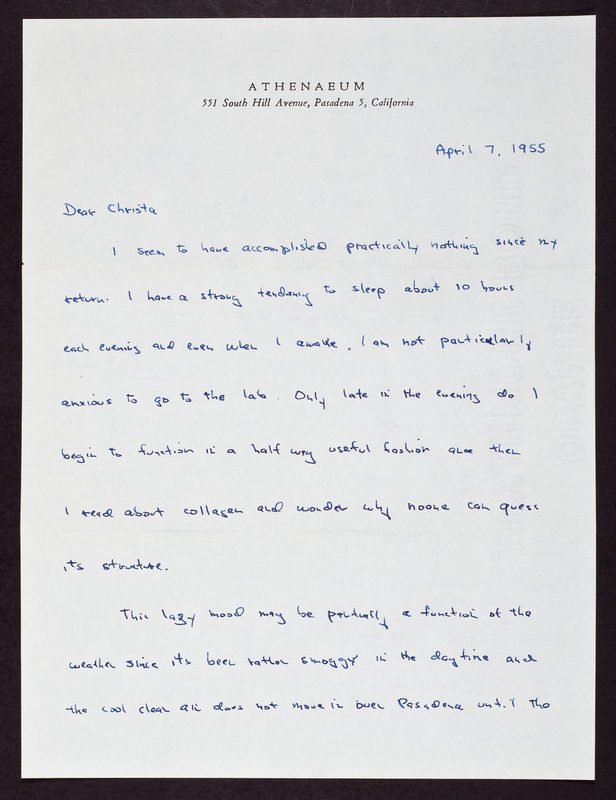 ATHENAEUM
551 South Hill Avenue, Pasadena 5, California
April 7, 1955
Dear Christa
I seem to have accomplished practically nothing since my
return. I have a strong tendancy to sleep about 10 hours
each evening and even when I awake, I am not particularly
anxious to go to the lab. Only late in the evening do I
begin to function in a half way useful fashion and then
I read about collagen and wonder why noone can guess
its structure.
This lazy mood may be partially a function of the
weather since its been rather smoggy in the daytime and
the cool clear air does not move in over Pasadena until the